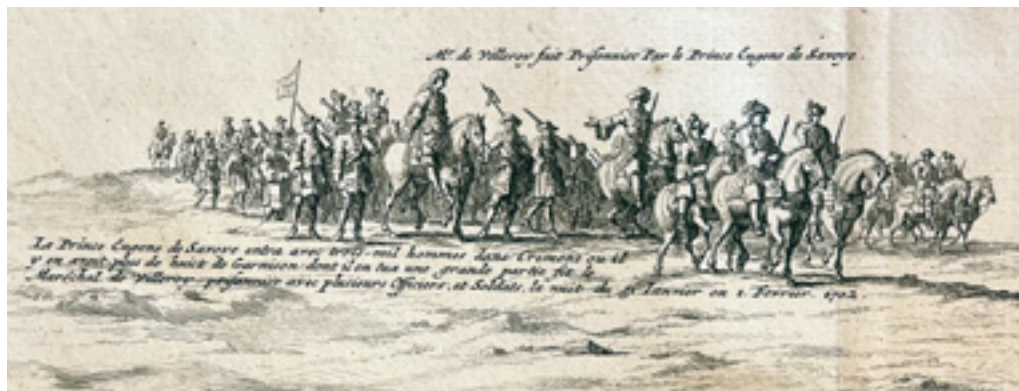 Mr. de Villeroy fait Prisonnier Par le Prince Eugene de Savoye.
Le Prince Eugene de Savoye entra avec trois mil hommes dans Cremone ou il
y en avoit plus de huict de Garnison dont il en tua une grande partie fit le
Maréchal de Villeroy prisonnier avec plusieurs Officiers, et Soldats, la nuit du 31 Janvier au 1. Fevrier. 1702.